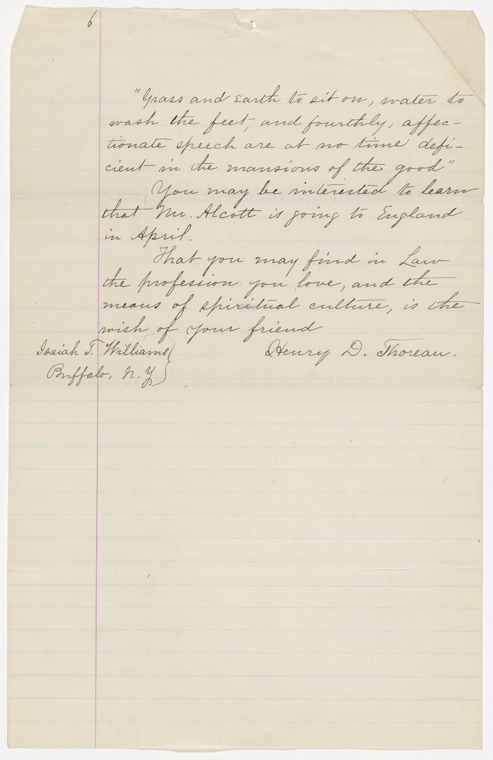 6
"Grass and earth to sit on, water to
wash the feet, and fourthly, affec-
tionate speech are at no time defi-
cient in the mansions of the good"
You may be interested to learn
that Mr. Alcott is going to England
in April.
That you may find in Law
the profession you love, and the
means of spiritual culture, is the
wish of your friend
Henry D. Thoreau.
Isaiah T. Williams}
Buffalo, N.Y.}